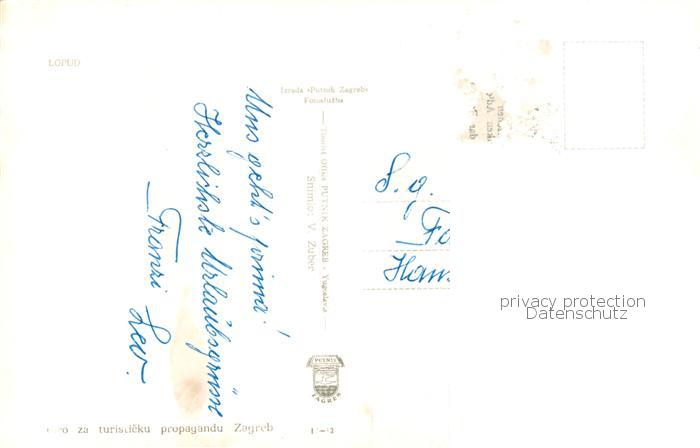 LOPUD
Uns geht's prima!
Herzlichste Urlaubsgrüsse
Franzi
Izrada »Putnik Zagreb«
Fotoslužba
Tourist Office PUTNIK ZAGREB - Yugoslavia
Snimio: V. Zuber
PUTNIK
ZAGREB
za turističku propagandu Zagreb
S. g.
Fa
Hans
privacy protection
Datenschutz